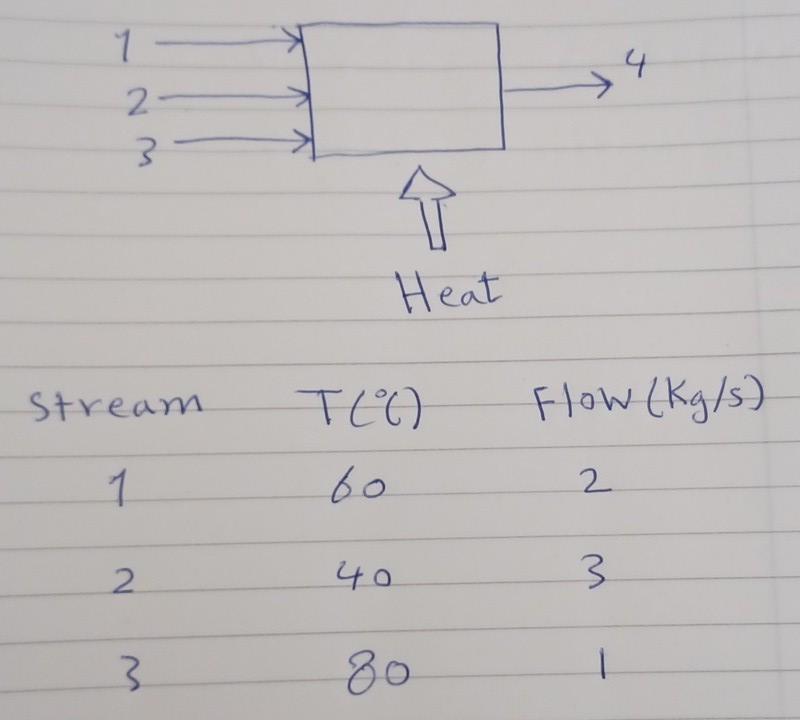 1
4
2
3
Heat
Stream T(°C) Flow (Kg/s)
1 60 2
2 40 3
3 80 1